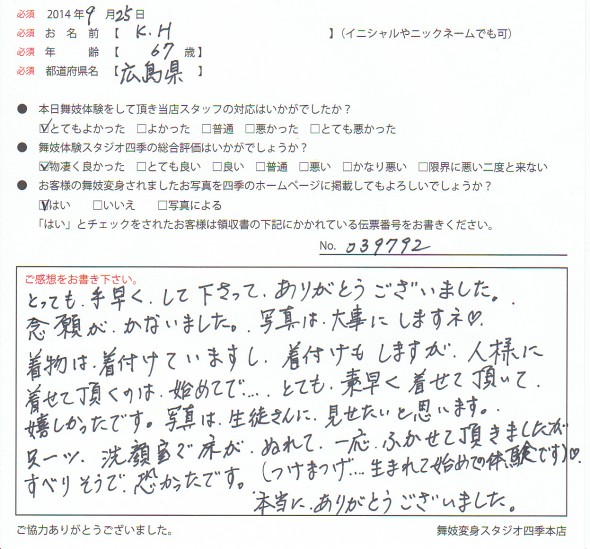 必須 2014年9月25日
必須 お名前【 K.H 】(イニシャルやニックネームでも可)
必須 年齢【 67 歳】
必須 都道府県名【 広島県 】
● 本日舞妓体験をして頂き当店スタッフの対応はいかがでしたか?
☑とてもよかった □よかった □普通 □悪かった □とても悪かった
● 舞妓体験スタジオ四季の総合評価はいかがでしょうか?
☑物凄く良かった □とても良い □良い □普通 □悪い □かなり悪い □限界に悪い二度と来ない
● お客様の舞妓変身されましたお写真を四季のホームページに掲載してもよろしいでしょうか?
☑はい □いいえ □写真による
「はい」とチェックをされたお客様は領収書の下記にかかれている伝票番号をお書きください。
No. 039792
ご感想をお書き下さい。
とっても、手早く、して下さって、ありがとうございました。
念願が、かないました。写真は、大事にしますネ♡。
着物は、着付けていますし、着付けもしますが、人様に
着せて頂くのは、始めてで‥‥、とても、素早く着せて頂いて、
嬉しかったです。写真は、生徒さんに、見せたいと思います。
只一ツ、洗顔室で床が、ぬれて、一応、ふかせて頂きましたが
すべりそうで、恐かったです。(つけまつげ‥‥生まれて始めての体験です)♡。
本当に、ありがとうございました。
ご協力ありがとうございました。
舞妓変身スタジオ四季本店